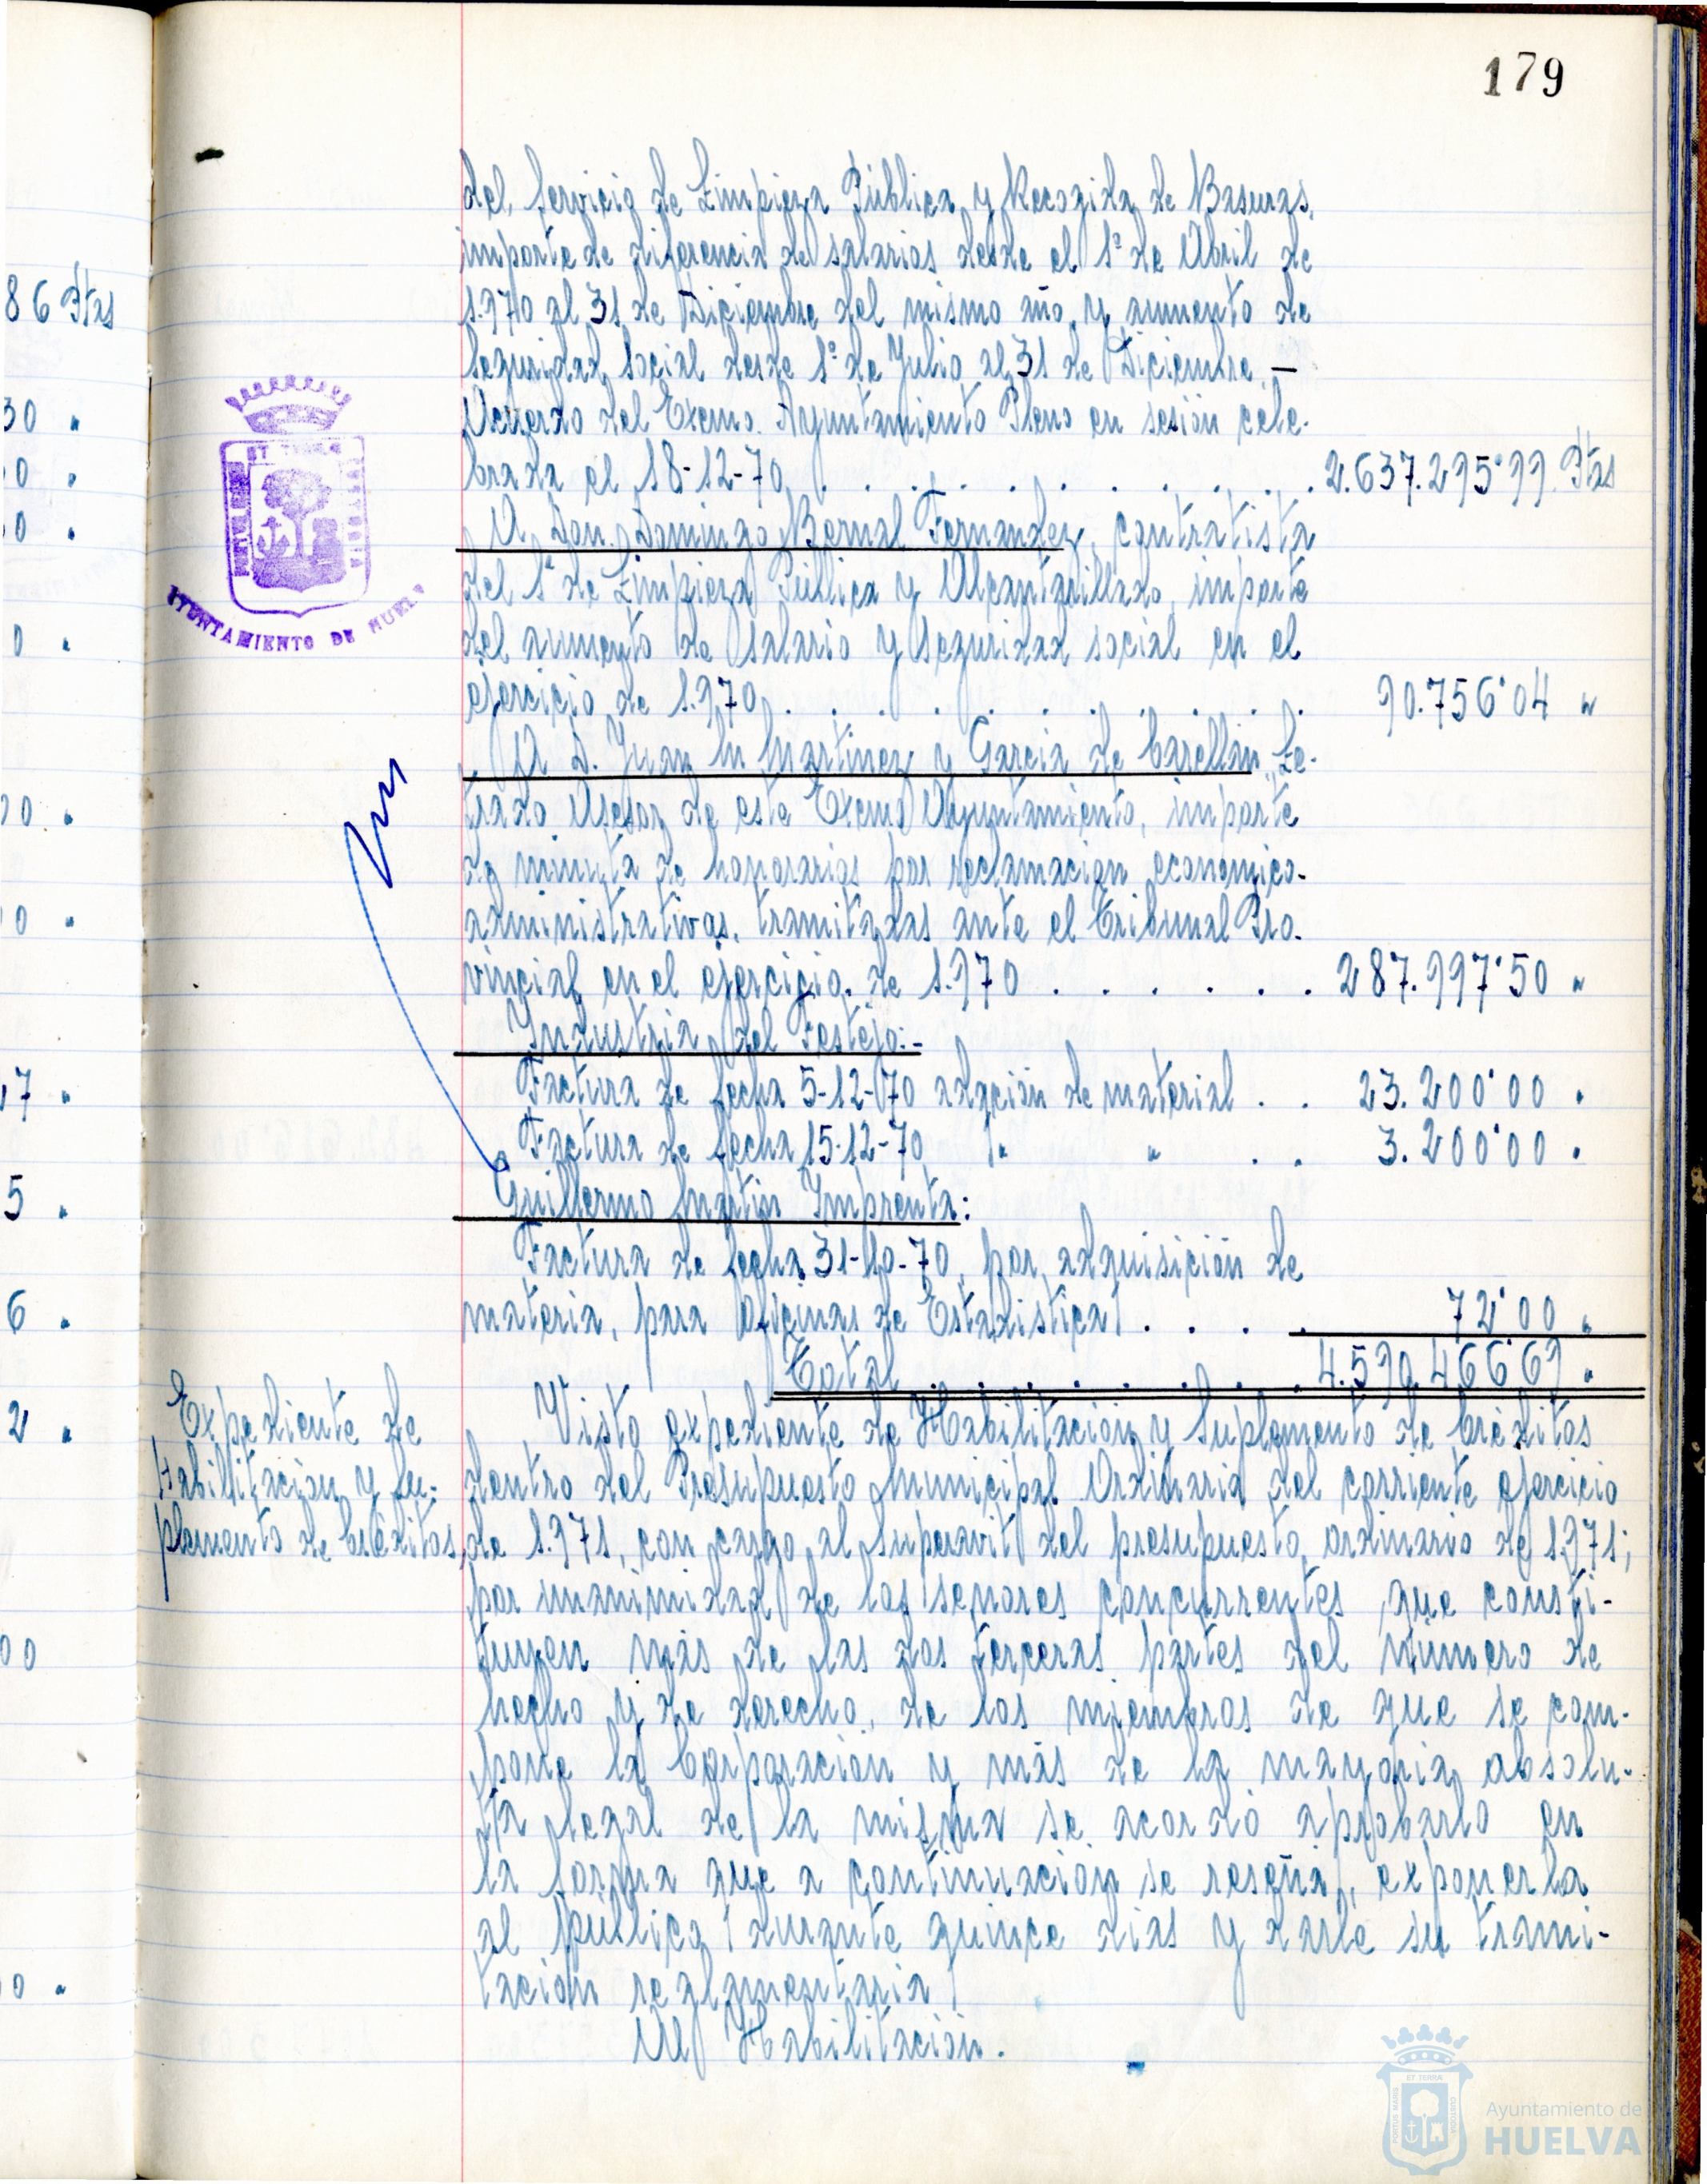 179
del Servicio de Limpieza Pública y Recogida de Basuras,
importe de diferencia de salarios desde el 1º de Abril de
1.970 al 31 de Diciembre del mismo año y aumento de
Seguridad Social desde 1º de Julio al 31 de Diciembre. —
Acuerdo del Excmo. Ayuntamiento Pleno en sesión cele-
brada el 18-12-70 . . . . . . . . . . 2.637.295'99 Ptas
A Don Domingo Bernal Fernandez, contratista
del Sº de Limpieza Pública y Alcantarillado, importe
del aumento de salario y seguridad social en el
ejercicio de 1.970 . . . . . . . . . . 90.756'04 "
A D. Juan M Martinez y Garcia de Casellan, Le-
trado Asesor de este Excmo Ayuntamiento, importe
de minuta de honorarios por reclamación económico-
administrativas, tramitadas ante el Tribunal Pro-
vincial en el ejercicio de 1.970 . . . . . . 287.997'50 "
Industria del Festejo:-
Factura de fecha 5-12-70 adqción de material . . 23.200'00 "
Factura de fecha 15-12-70 " " . . 3.200'00 "
Guillermo Martin Imprenta:
Factura de fecha 31-10-70, por adquisición de
materia, para Oficinas de Estadistica . . . . 72'00 "
Total . . . . . . . . 4.590.466'69 "
Expediente de
Habilitación y Su-
plemento de Créditos
Visto expediente de Habilitación y Suplemento de Créditos
dentro del Presupuesto Municipal Ordinario del corriente ejercicio
de 1.971, con cargo al Superavit del presupuesto ordinario de 1.971;
por unanimidad de los señores concurrentes que consti-
tuyen más de las dos terceras partes del número de
hecho y de derecho, de los miembros de que se com-
pone la Corporación y más de la mayoria absolu-
ta legal de la misma se acordó aprobarlo en
la forma que a continuación se reseña, exponerla
al público durante quince dias y darle su trami-
tación reglamentaria
A) Habilitación.
86 Ptas
30 "
0 "
0 "
0 "
00 "
0 "
17 "
5 "
6 "
2 "
00
0 "
AYUNTAMIENTO DE HUELVA
Ayuntamiento de
HUELVA